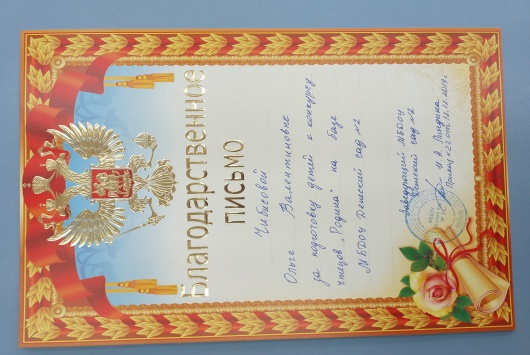 Благодарственное
ПИСЬМО
Чибисовой
Ольге Валентиновне
за подготовку детей к конкурсу
чтецов „Родина" на базе
МБДОУ Детский сад №2
Заведующий МБДОУ
Детский сад №2
И.А.
Приказ №22 от 12.11.2019г